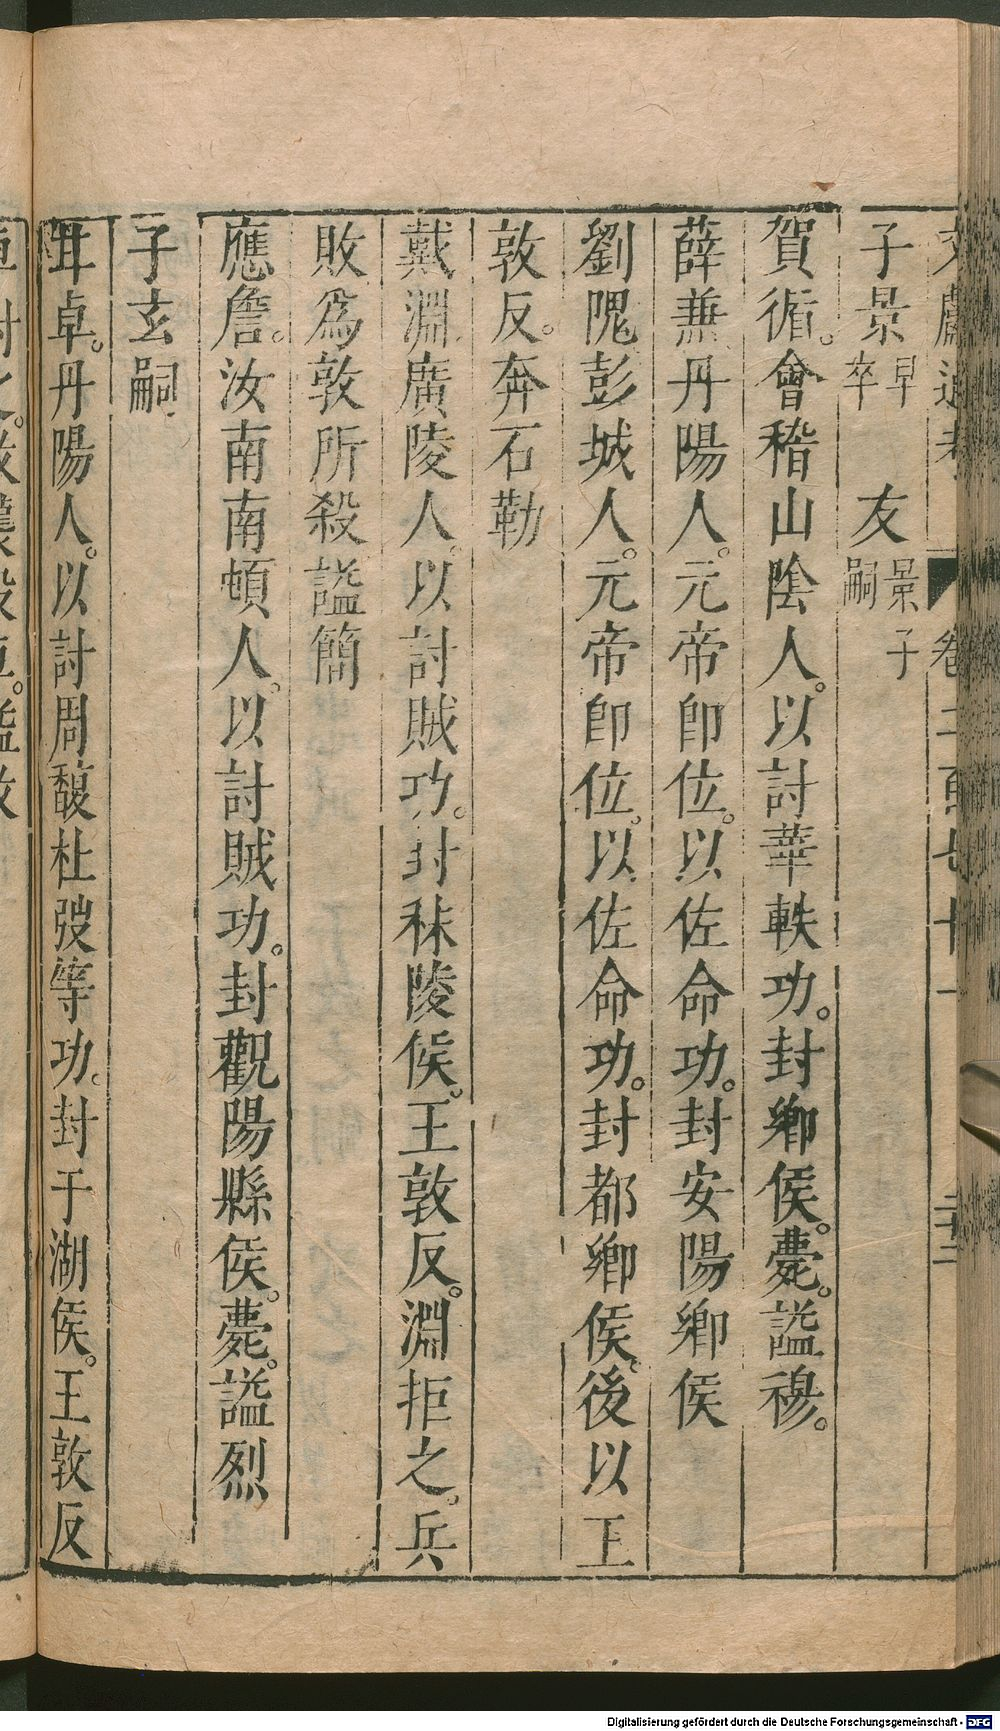 文獻通考 卷二百七十一 二十三
子景早卒 友景子嗣
賀循。會稽山陰人。以討華軼功。封鄉侯。薨。謚穆。
薛兼丹陽人。元帝即位。以佐命功。封安陽鄉侯
劉隗彭城人。元帝即位。以佐命功。封都鄉侯。後以王
敦反。奔石勒
戴淵廣陵人。以討賊功。封秣陵侯。王敦反。淵拒之。兵
敗為敦所殺謚簡
應詹。汝南南頓人。以討賊功。封觀陽縣侯。薨。謚烈
子玄嗣
甘卓。丹陽人。以討周馥杜弢等功。封于湖侯。王敦反
Digitalisierung gefördert durch die Deutsche Forschungsgemeinschaft - DFG